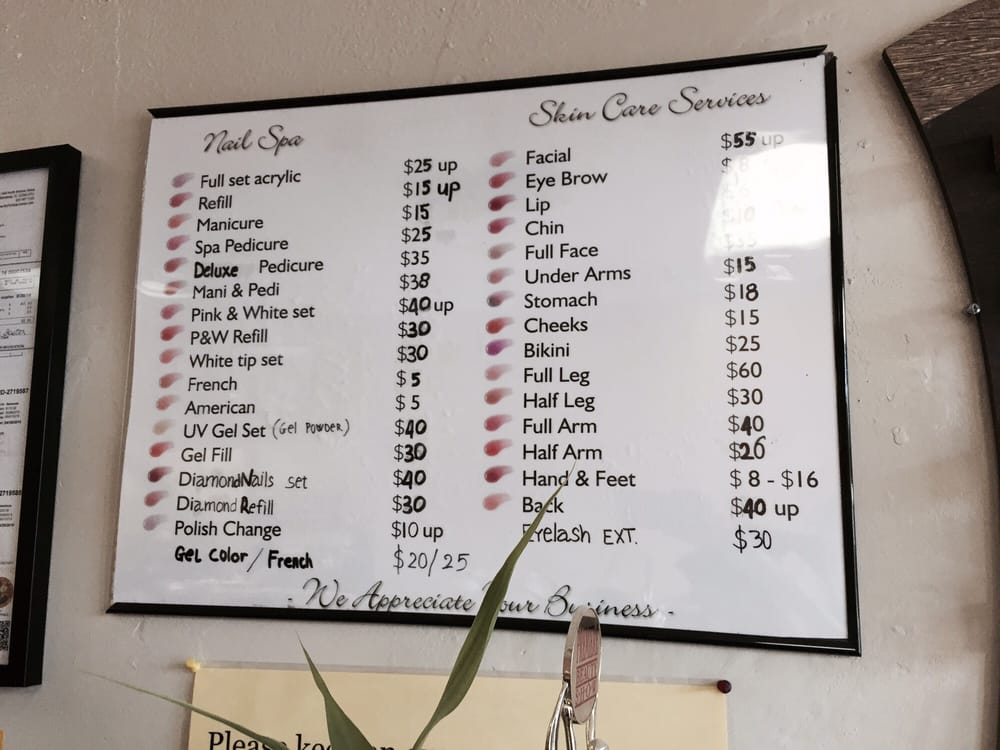 Nail Spa
Full set acrylic $25 up
Refill $15 up
Manicure $15
Spa Pedicure $25
Deluxe Pedicure $35
Mani & Pedi $38
Pink & White set $40 up
P&W Refill $30
White tip set $30
French $5
American $5
UV Gel Set (Gel Powder) $40
Gel Fill $30
Diamond Nails set $40
Diamond Refill $30
Polish Change $10 up
Gel color / French $20/25
Skin Care Services
Facial $55 up
Eye Brow
Lip
Chin
Full Face
Under Arms $15
Stomach $18
Cheeks $15
Bikini $25
Full Leg $60
Half Leg $30
Full Arm $40
Half Arm $26
Hand & Feet $8 - $16
Back $40 up
Eyelash EXT. $30
- We Appreciate Your Business -
Please